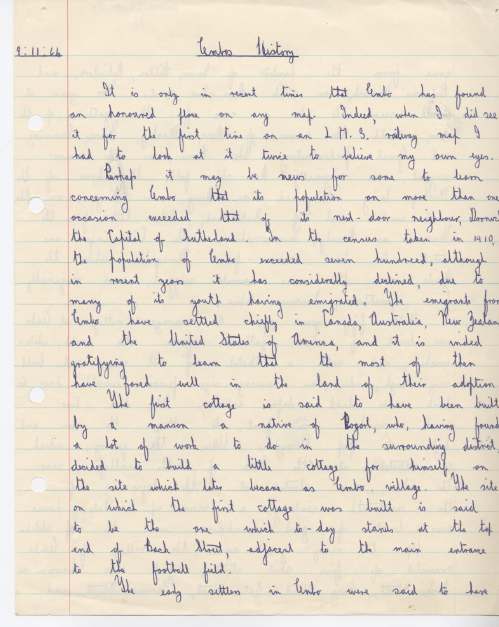 9:11:64 Embo History
It is only in recent times that Embo has found
an honoured place on any map. Indeed, when I did see
it for the first time on an L.M.S. railway map I
had to look at it twice to believe my own eyes.
Perhaps it may be news for some to learn
concerning Embo that its population on more than one
occasion exceeded that of its next-door neighbour, Dornoch
the Capital of Sutherland. In the census taken in 1910,
the population of Embo exceeded seven hundreed, although
in recent years it has considerably declined, due to
many of its youth having emigrated. The emigrants from
Embo have settled chiefly in Canada, Australia, New Zealand
and the United States of America, and it is indeed
gratifying to learn that the most of them
have fared well in the land of their adoption
The first cottage is said to have been built
by a mason a native of Rogart, who, having found
a lot of work to do in the surrounding district
decided to build a little cottage for himself on
the site which later became as Embo village. The site
on which the first cottage was built is said
to be the one which to-day stands at the top
end of Back Street, adjacent to the main entrance
to the football field.
The early settlers in Embo were said to have